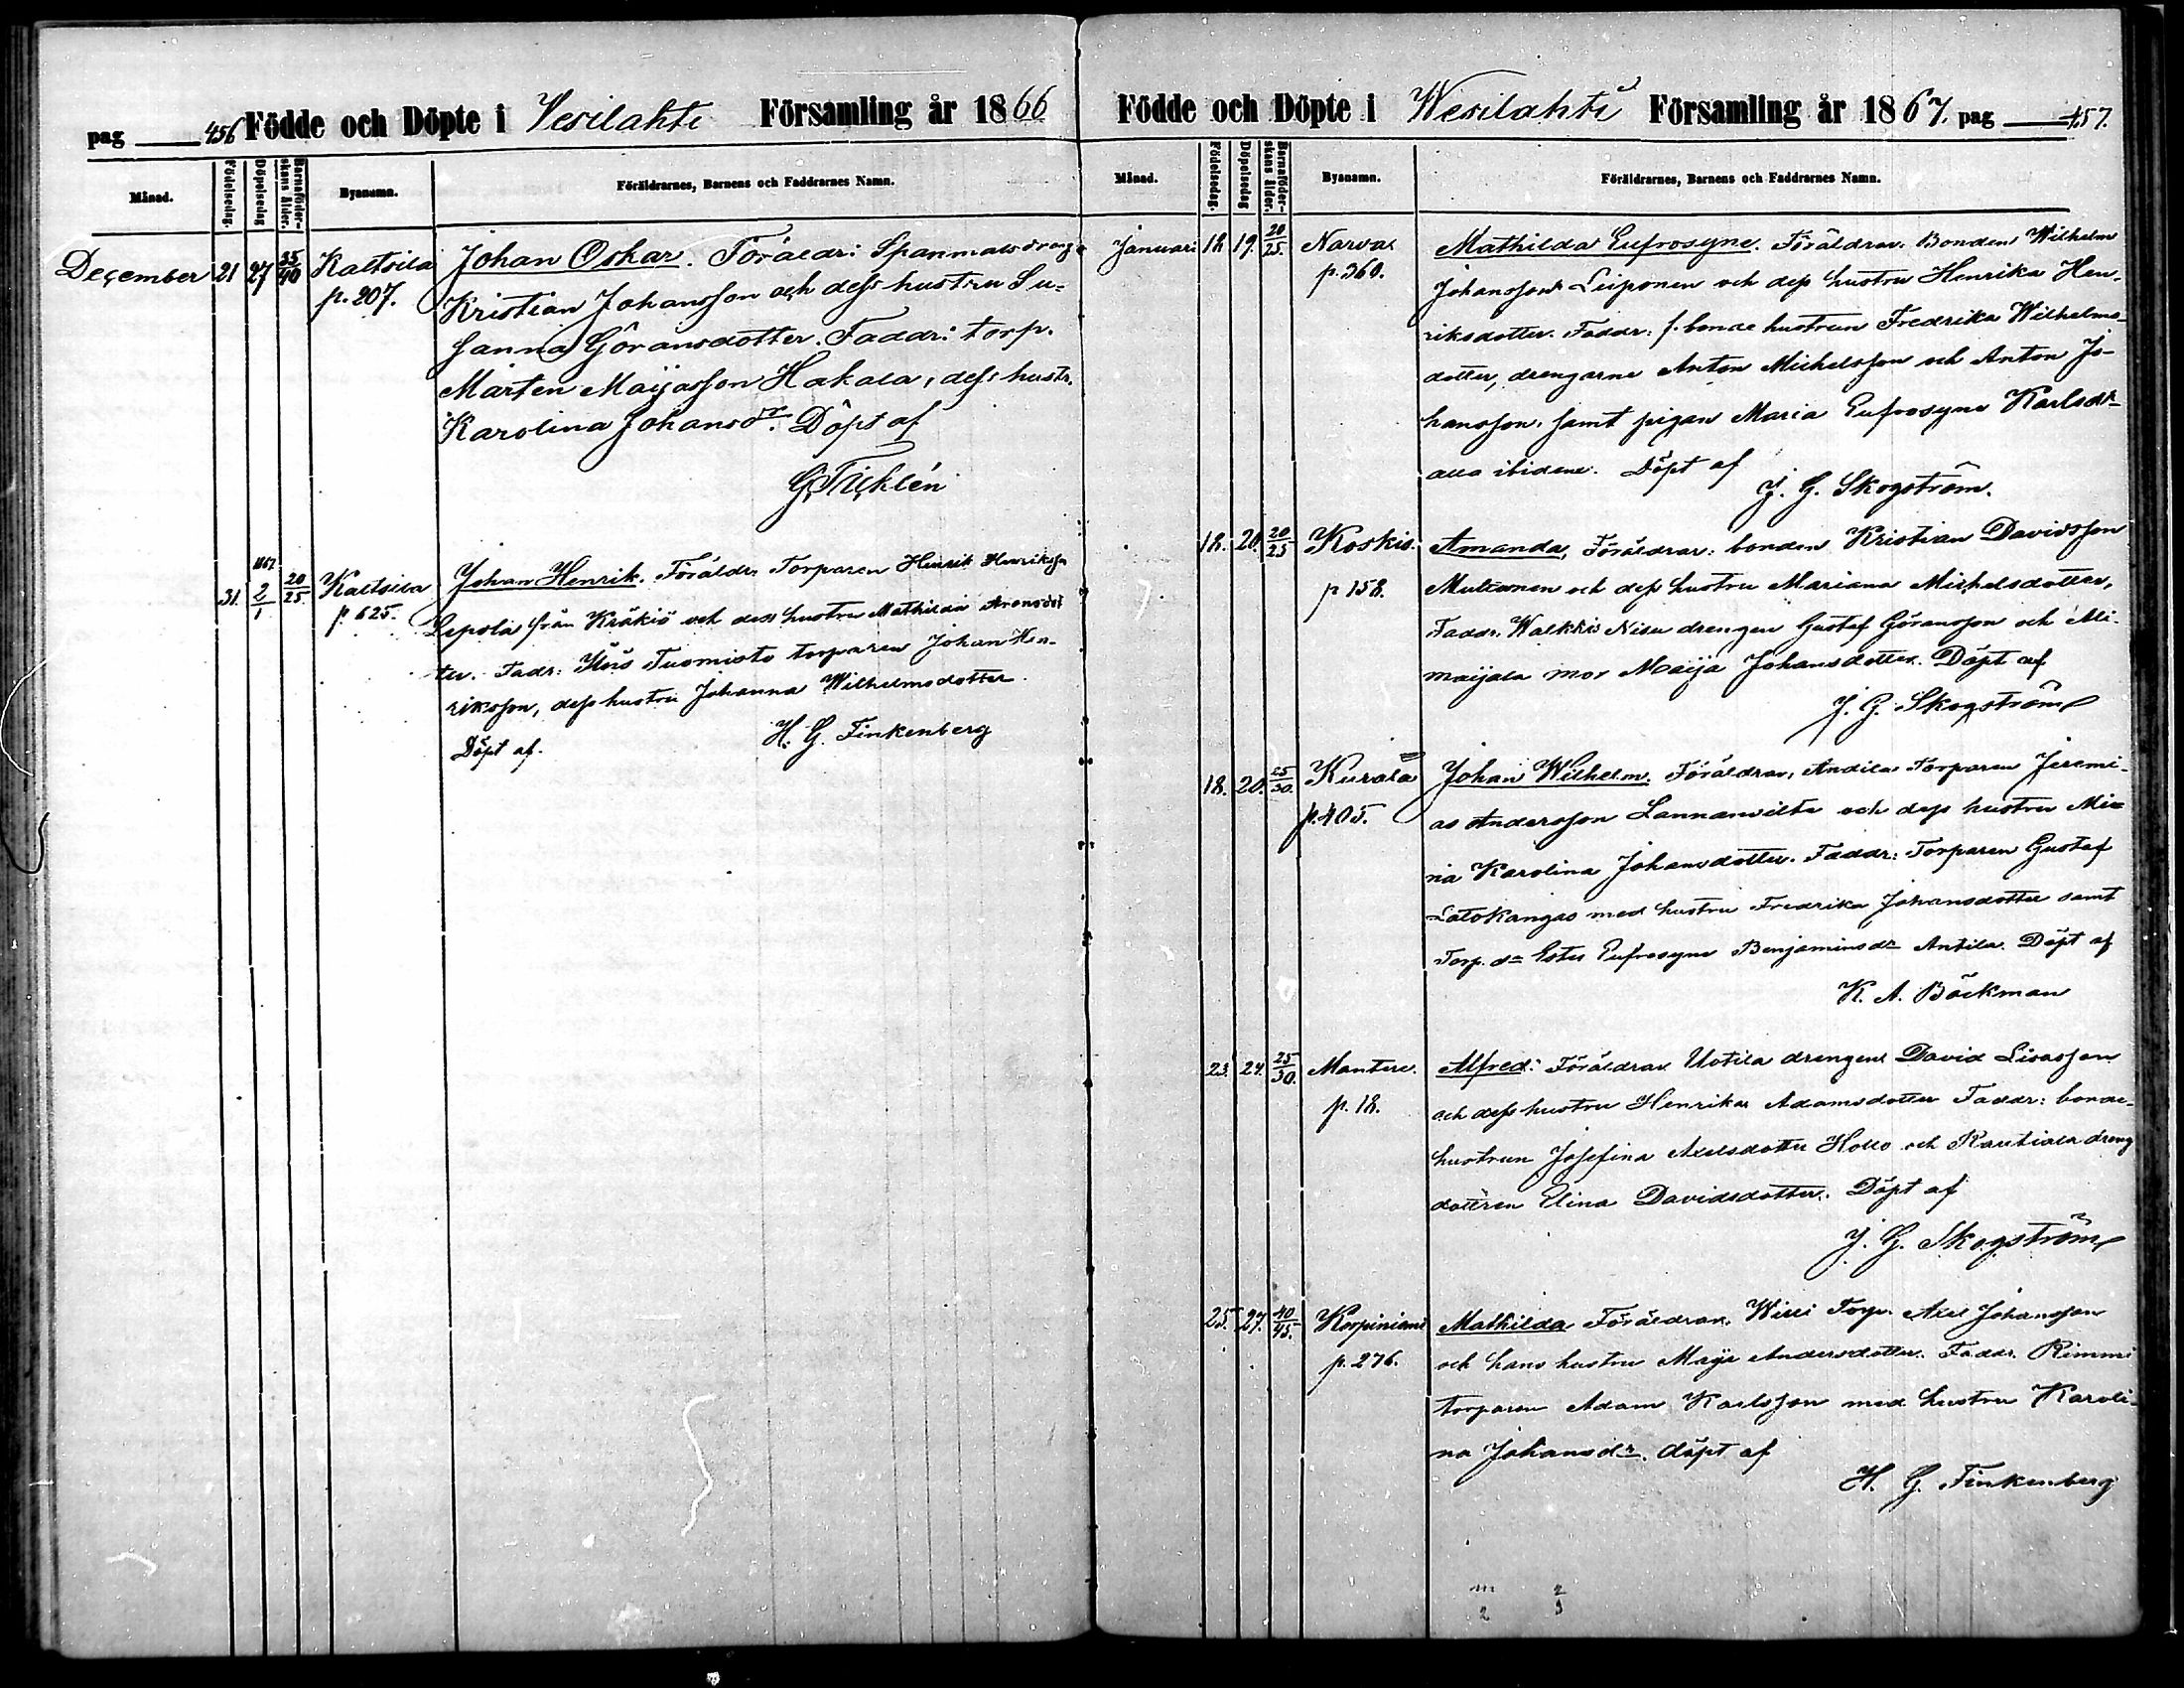 pag 456 Födde och Döpte i Vesilahti Församling år 1866
Månad. Födelsedag. Döpelsedag Barnaföderskans ålder. Byanamn. Föräldrarnes, Barnens och Faddrarnes Namn.
December 21 27 35/40 Kaltsila Johan Oskar. Föräldr: Spanmålsdreng
p. 207. Kristian Johansson och dess hustru Su-
sanna Göransdotter. Faddr: torp.
Mårten Maijasson Hakala, dess hustr.
Karolina Johansdr. Döpt af
G. Ticklén
1867
31. 2/1 20/25 Kaltsila Johan Henrik. Föräldr. Torparen Henrik Henriksson
p 625. Lepola från Kräkiö och dess hustru Mathilda Aronsdot
ter. Fadr: Tuomisto torparen Johan Hen-
riksson, dess hustru Johanna Wilhelmsdotter.
Döpt af. H. G. Finkenberg
Födde och Döpte i Wesilahti Församling år 1867. pag 457.
Månad. Födelsedag. Döpelsedag Barnaföderskans ålder. Byanamn. Föräldrarnes, Barnens och Faddrarnes Namn.
Januari 18 19. 20/25. Narva Mathilda Eufrosyne. Föräldrar. Bonden Wilhelm
p. 360. Johansson Leiponen och dess hustru Henrika Hen-
riksdotter. Faddr: f. bonde hustrun Fredrika Wilhelms-
dotter, drengarne Anton Michelsson och Anton Jo-
hansson, samt pigan Maria Eufrosyne Karlsdr
alla ibidem. Döpt af
J. G. Skogström.
18. 20. 20/25 Koskis. Amanda, Föräldrar: bonden Kristian Davidsson
p 158. Multanen och dess hustru Mariana Michelsdotter,
Faddr. Walkkis Nisu drengen Gustaf Göransson och Ali-
maijala mor Maija Johansdotter. Döpt af
J. G. Skogström
18. 20. 25/30. Kurala Johan Wilhelm. Föräldrar, Andila Torparen Jeremi-
p. 405. as Andersson Lannanvilta och dess hustru Mi-
na Karolina Johansdotter. Faddr: Torparen Gustaf
Latokangas med hustru Fredrika Johansdotter samt
Torp. dr Ester Eufrosyne Benjaminsdr Antila. Döpt af
K. A. Bäckman
23. 24. 25/30. Mantere. Alfred. Föräldrar Uotila drengen David Lisasson
p. 18. och dess hustru Henrika Adamsdotter Faddr: bonde-
hustrun Josefina Axelsdotter Hollo och Rautiala dreng
dottren Elina Davidsdotter. Döpt af
J. G. Skogström
25. 27. 40/45. Korpiniemi Mathilda Föräldrar. Torp. Axel Johansson
p. 276. och hans hustru Maija Andersdotter. Faddr. Rimmi
torparen Adam Karlsson med hustru Karoli-
na Johansdr. döpt af
H. G. Finkenberg
m 2
2 3